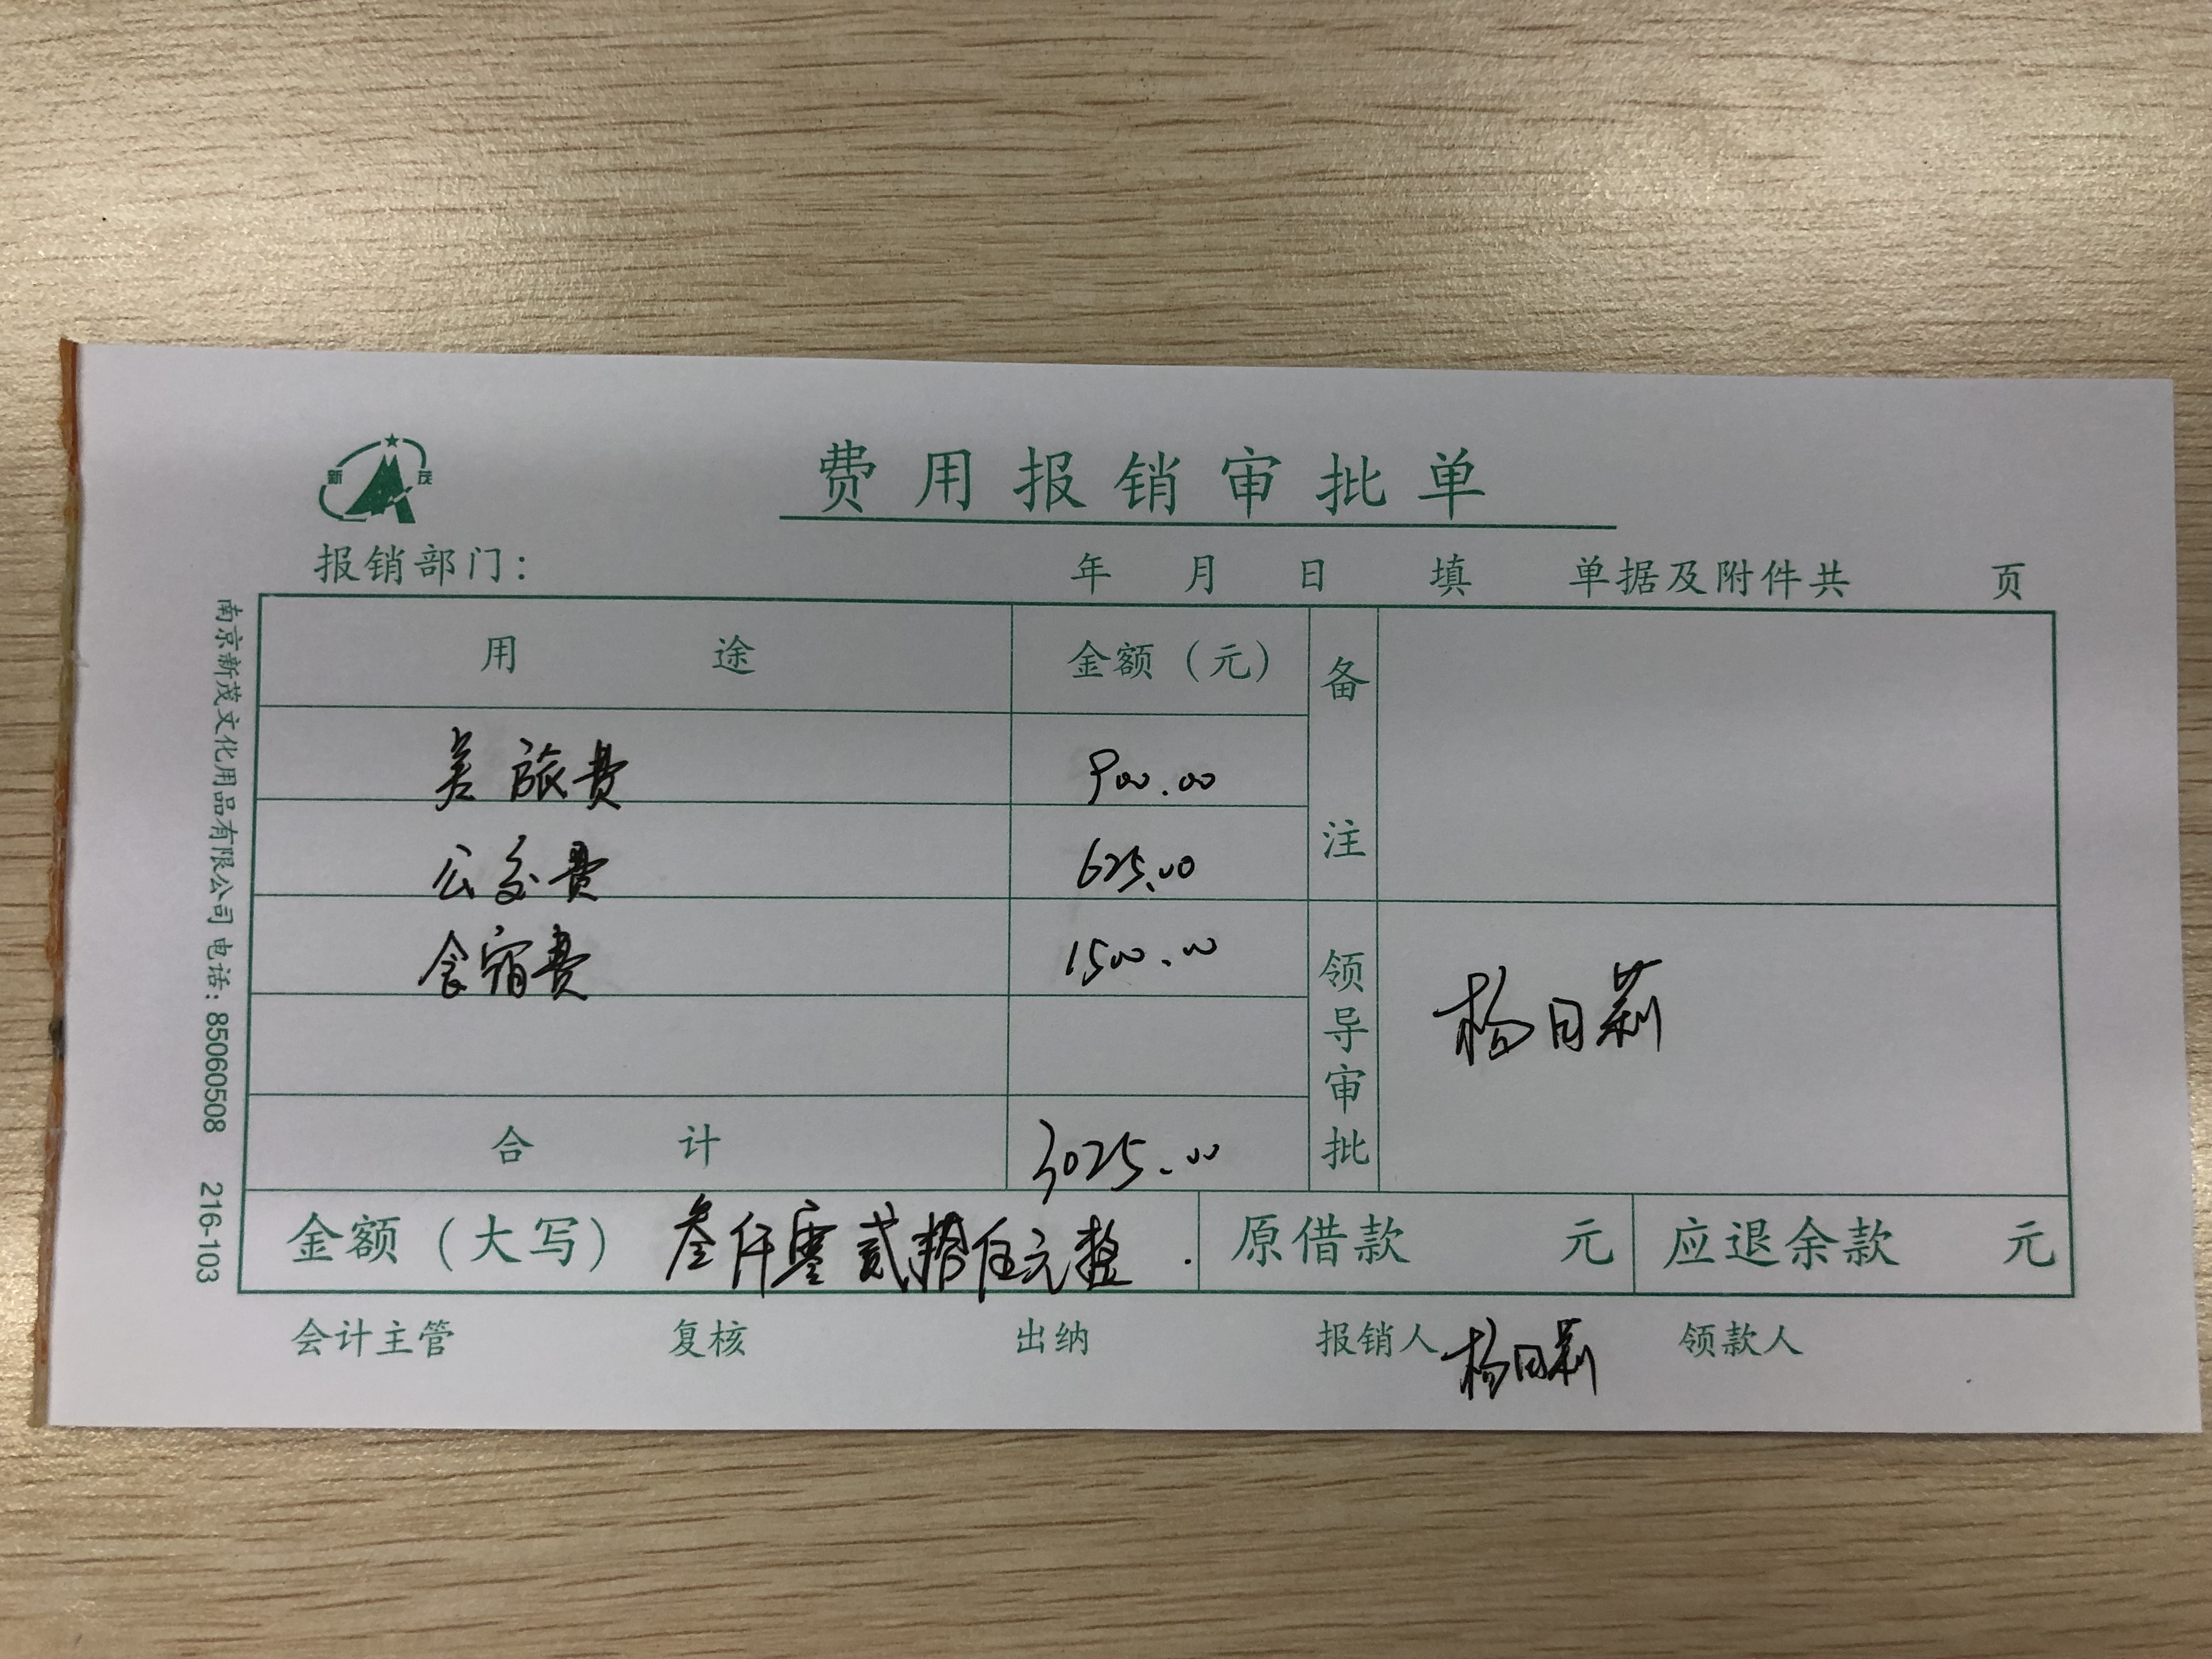 新
民
费用报销审批单
报销部门： 年 月 日 填 单据及附件共 页
用途 金额（元） 备注
差旅费 900.00
公交费 625.00
食宿费 1500.00
领导审批 杨日新
合计 3025.00
金额（大写） 叁仟零贰拾伍元整. 原借款 元 应退余款 元
会计主管 复核 出纳 报销人 杨日新 领款人
南京新茂文化用品有限公司 电话：85060508 216-103